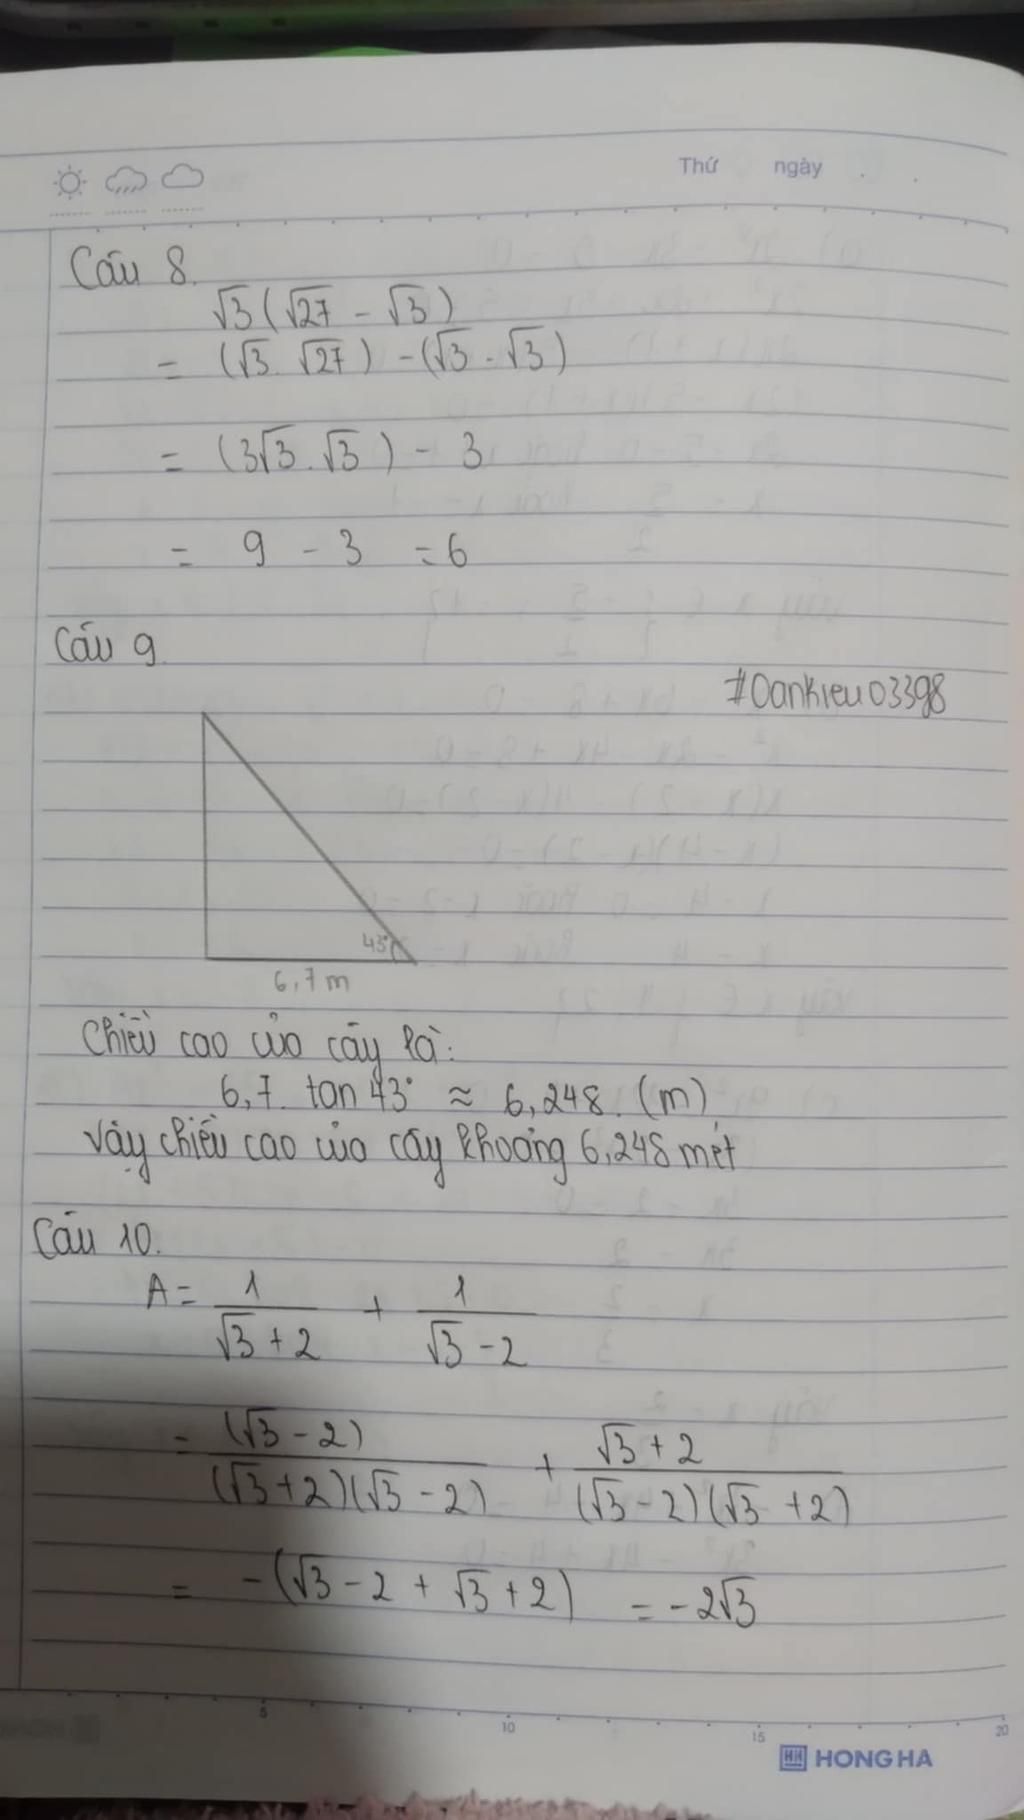 Thứ ngày
Câu 8.
√3(√27 - √3)
= (√3.√27) - (√3.√3)
= (3√3.√3) - 3
= 9 - 3 = 6
Câu 9
#Oankieu03398
43°
6,7 m
Chiều cao của cây là:
6,7. tan 43° ≈ 6,248. (m)
Vậy chiều cao của cây khoảng 6,248 mét
Câu 10.
A = 1/(√3 + 2) + 1/(√3 - 2)
= (√3 - 2)/((√3 + 2)(√3 - 2)) + (√3 + 2)/((√3 - 2)(√3 + 2))
= -(√3 - 2 + √3 + 2) = -2√3
5 10 15 20
HONG HA